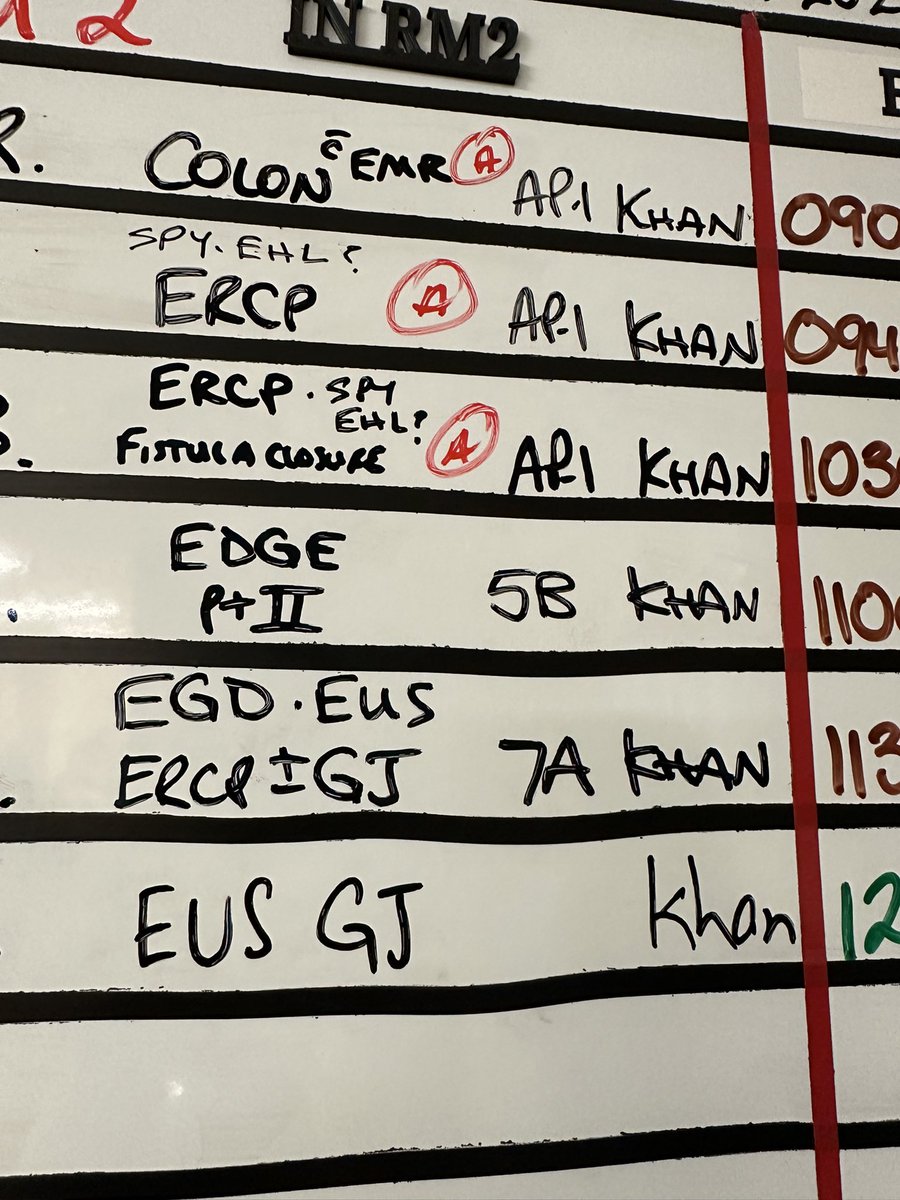 IN RM2
COLON c̄ EMR A API KHAN 090
SPY. EHL?
ERCP A API KHAN 094
ERCP. SPY
EHL?
FISTULA CLOSURE A API KHAN 103
EDGE
pt II 5B KHAN 110
EGD. EUS
ERCP ± GJ 7A KHAN 113
EUS GJ Khan 12